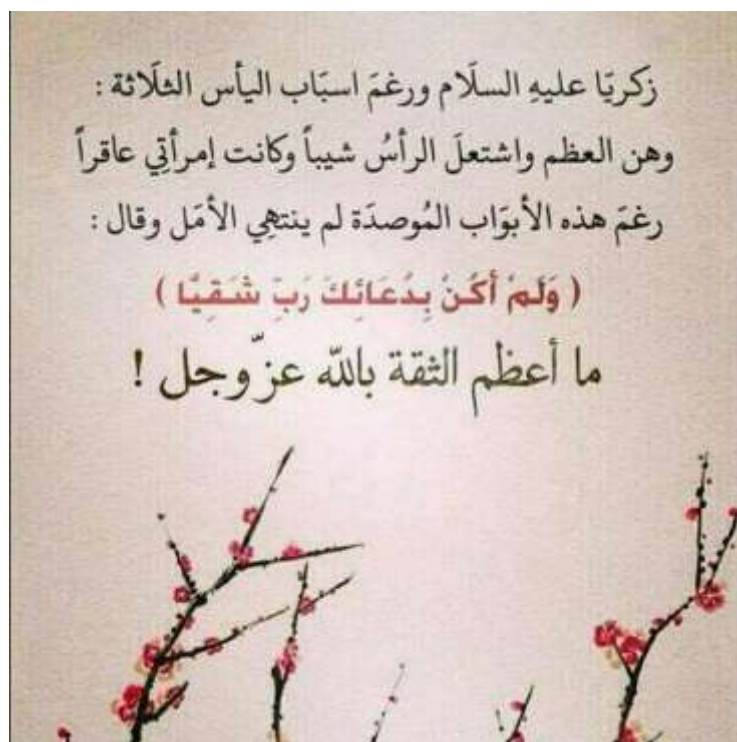 زكريَا عليهِ السلَام ورغمَ اسبَاب اليأس الثلَاثة :
وهن العظم واشتعلَ الرأسُ شيباً وكانت إمرأتِي عاقراً
رغمَ هذه الأبوَاب المُوصدَة لم ينتهِي الأمَل وقال :
( وَلَمْ أَكُنْ بِدُعَائِكَ رَبِّ شَقِيًّا )
ما أعظم الثقة بالله عزّ وجل !